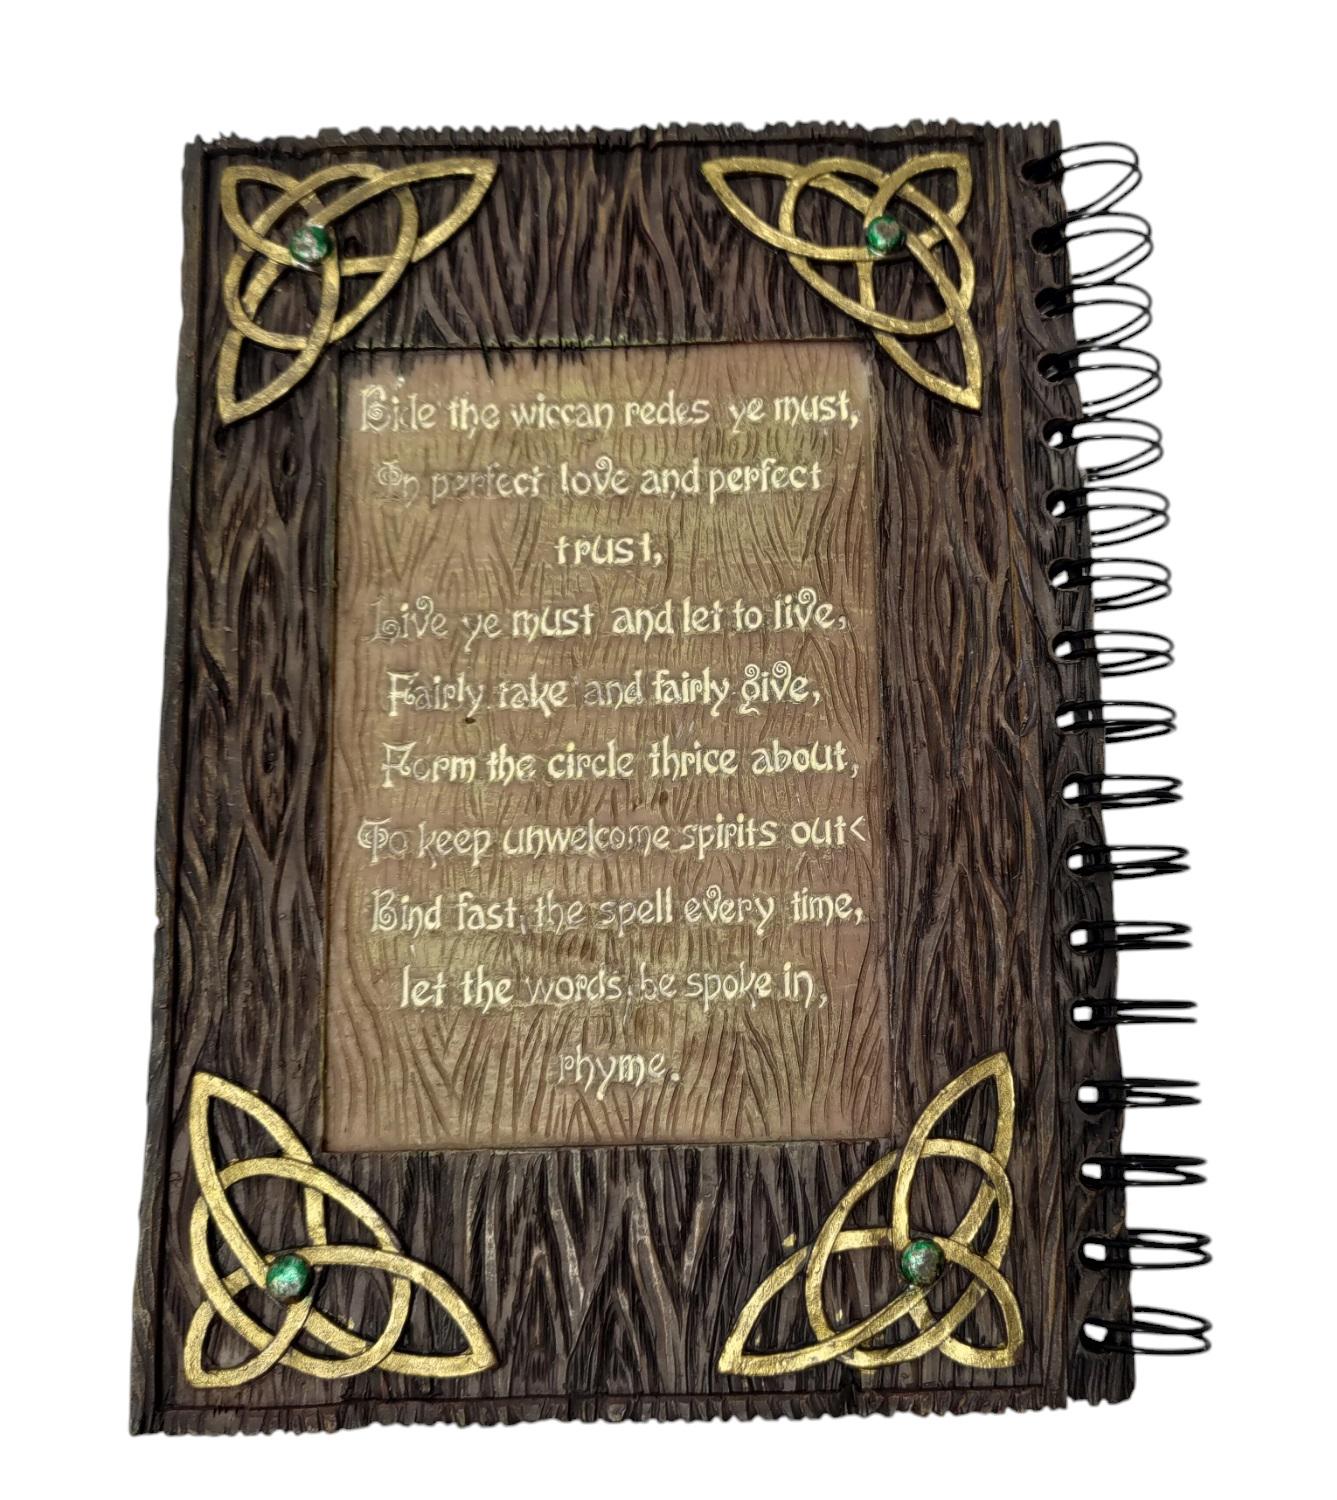 Bide the wiccan redes ye must,
In perfect love and perfect
trust,
Live ye must and let to live,
Fairly take and fairly give,
Form the circle thrice about,
To keep unwelcome spirits out<
Bind fast, the spell every time,
let the words, be spoke in,
rhyme.